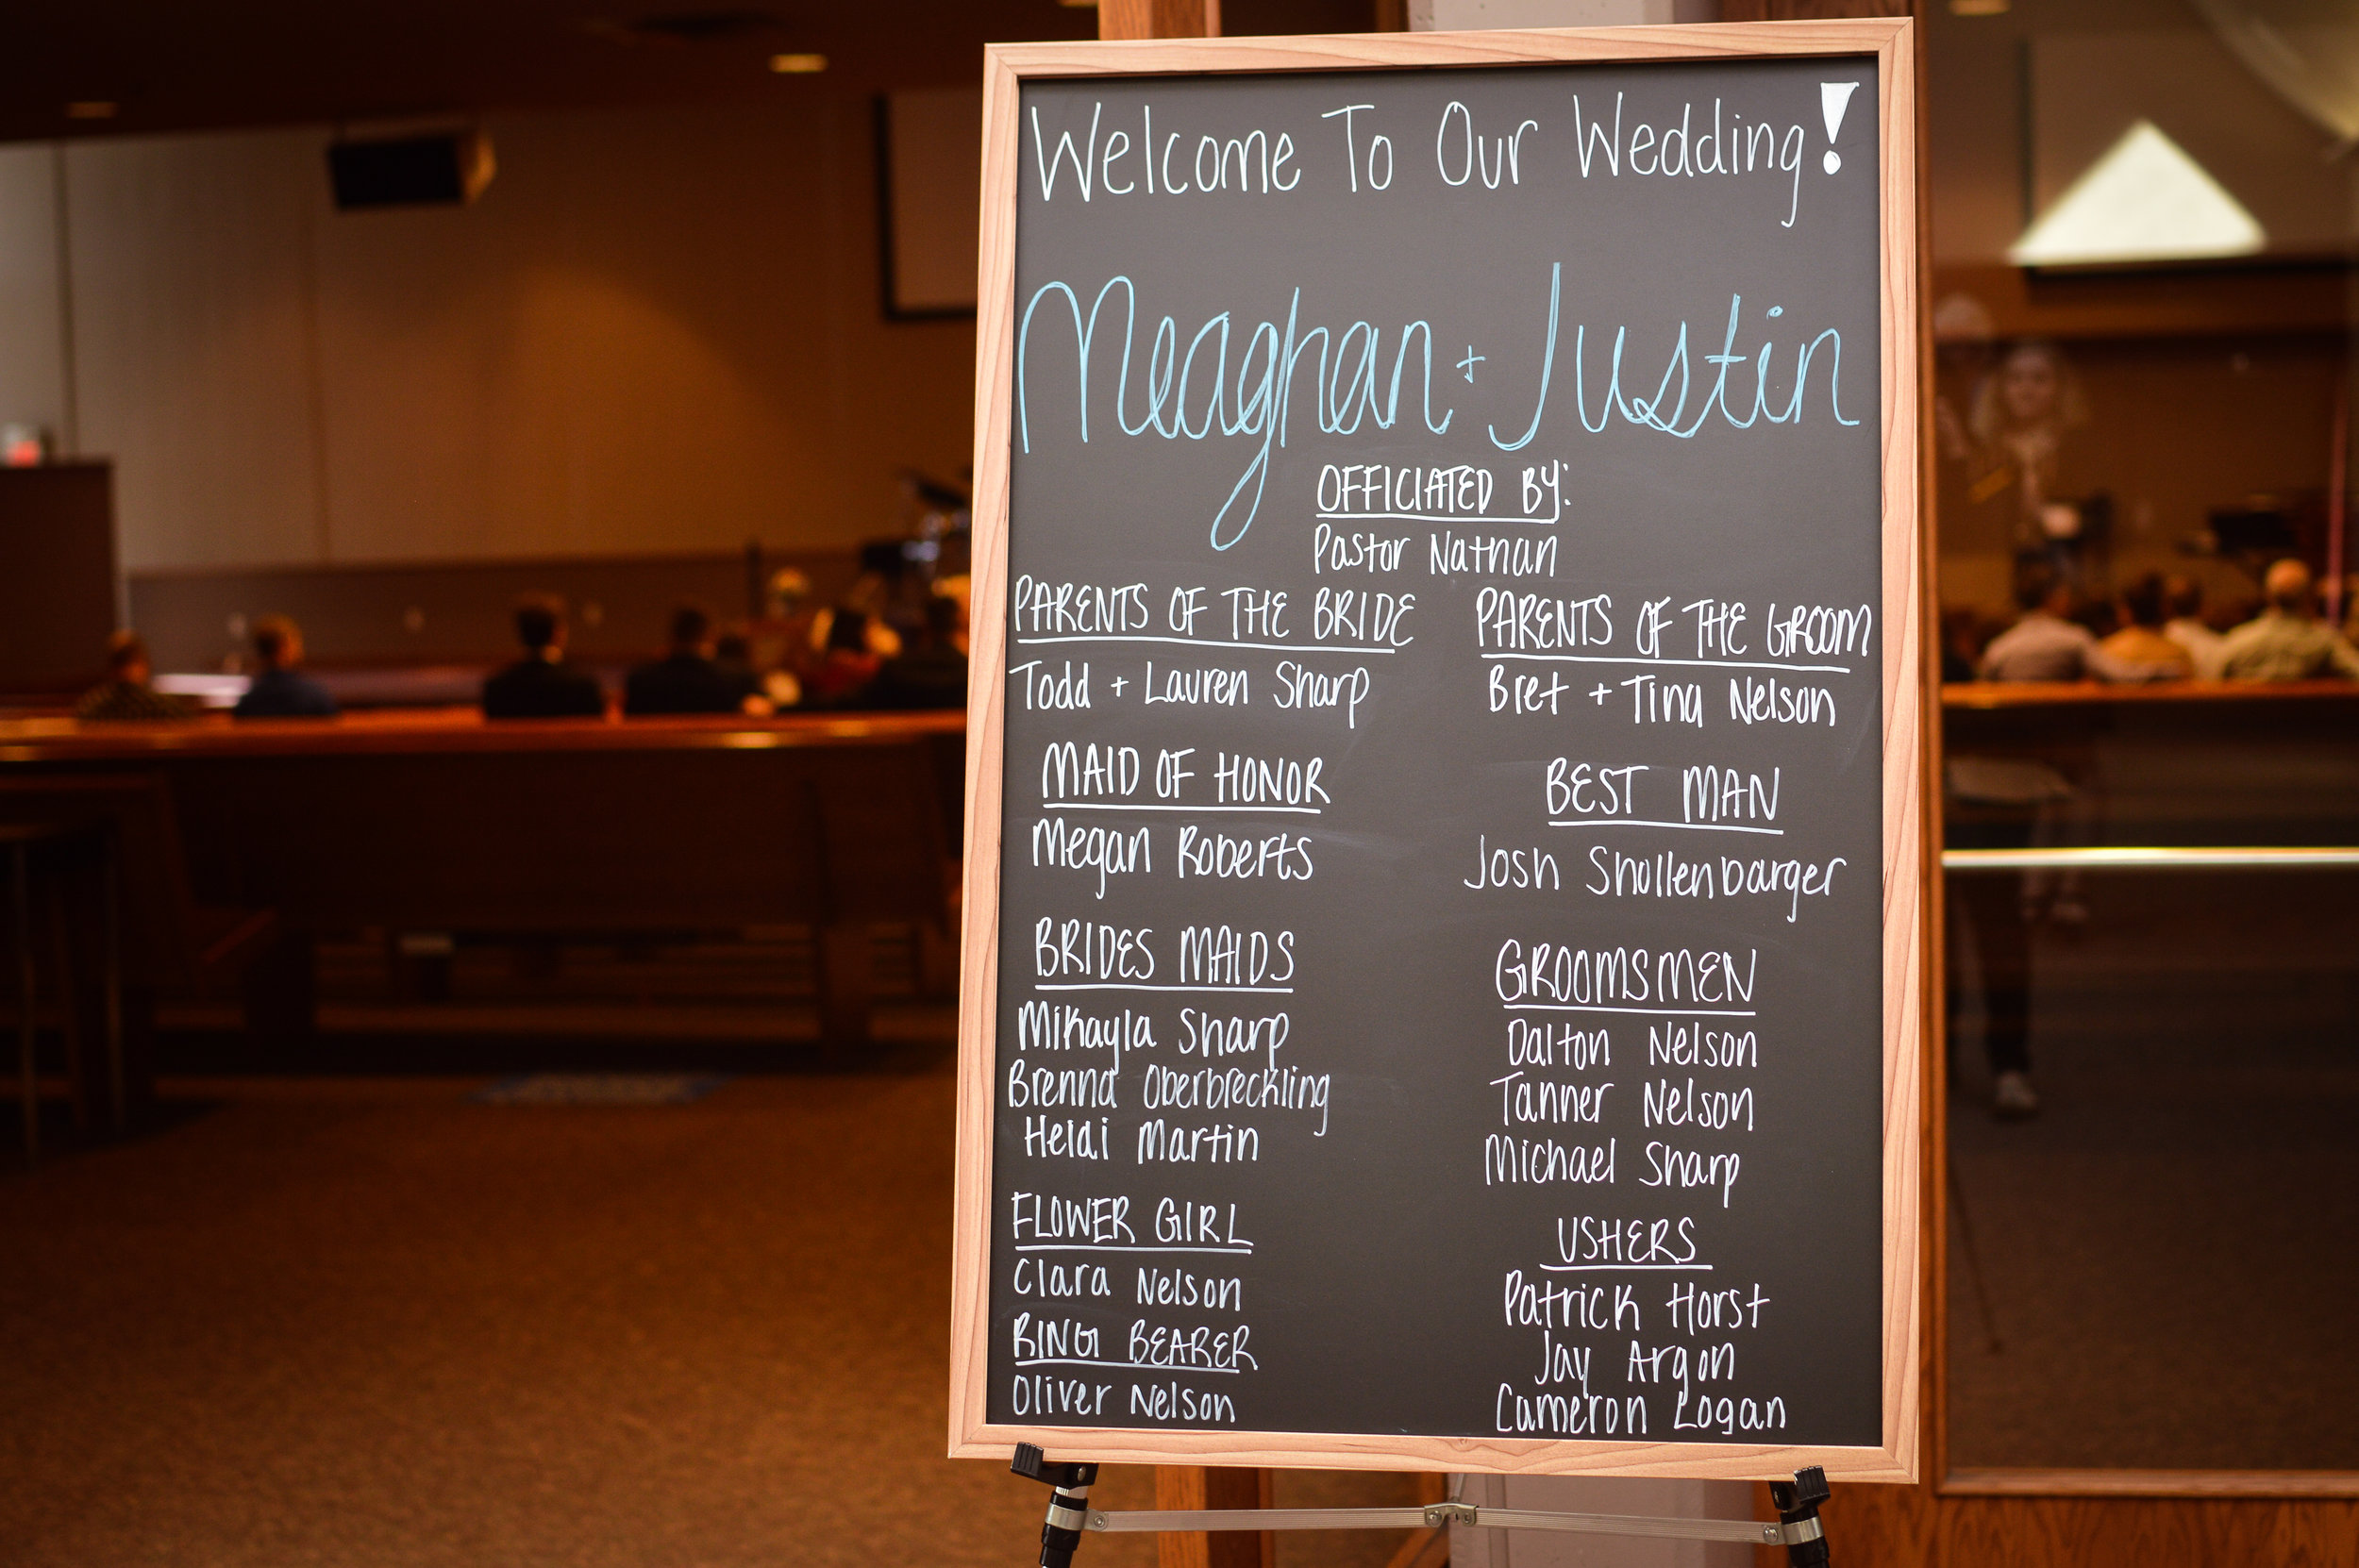 Welcome To Our Wedding!
Meaghan + Justin
OFFICIATED BY:
Pastor Nathan
PARENTS OF THE BRIDE
Todd + Lauren Sharp
MAID OF HONOR
Megan Roberts
BRIDES MAIDS
Mikayla Sharp
Brenna Oberbreckling
Heidi Martin
FLOWER GIRL
Clara Nelson
RING BEARER
Oliver Nelson
PARENTS OF THE GROOM
Bret + Tina Nelson
BEST MAN
Josh Shollenbarger
GROOMSMEN
Dalton Nelson
Tanner Nelson
Michael Sharp
USHERS
Patrick Horst
Jay Argon
Cameron Logan